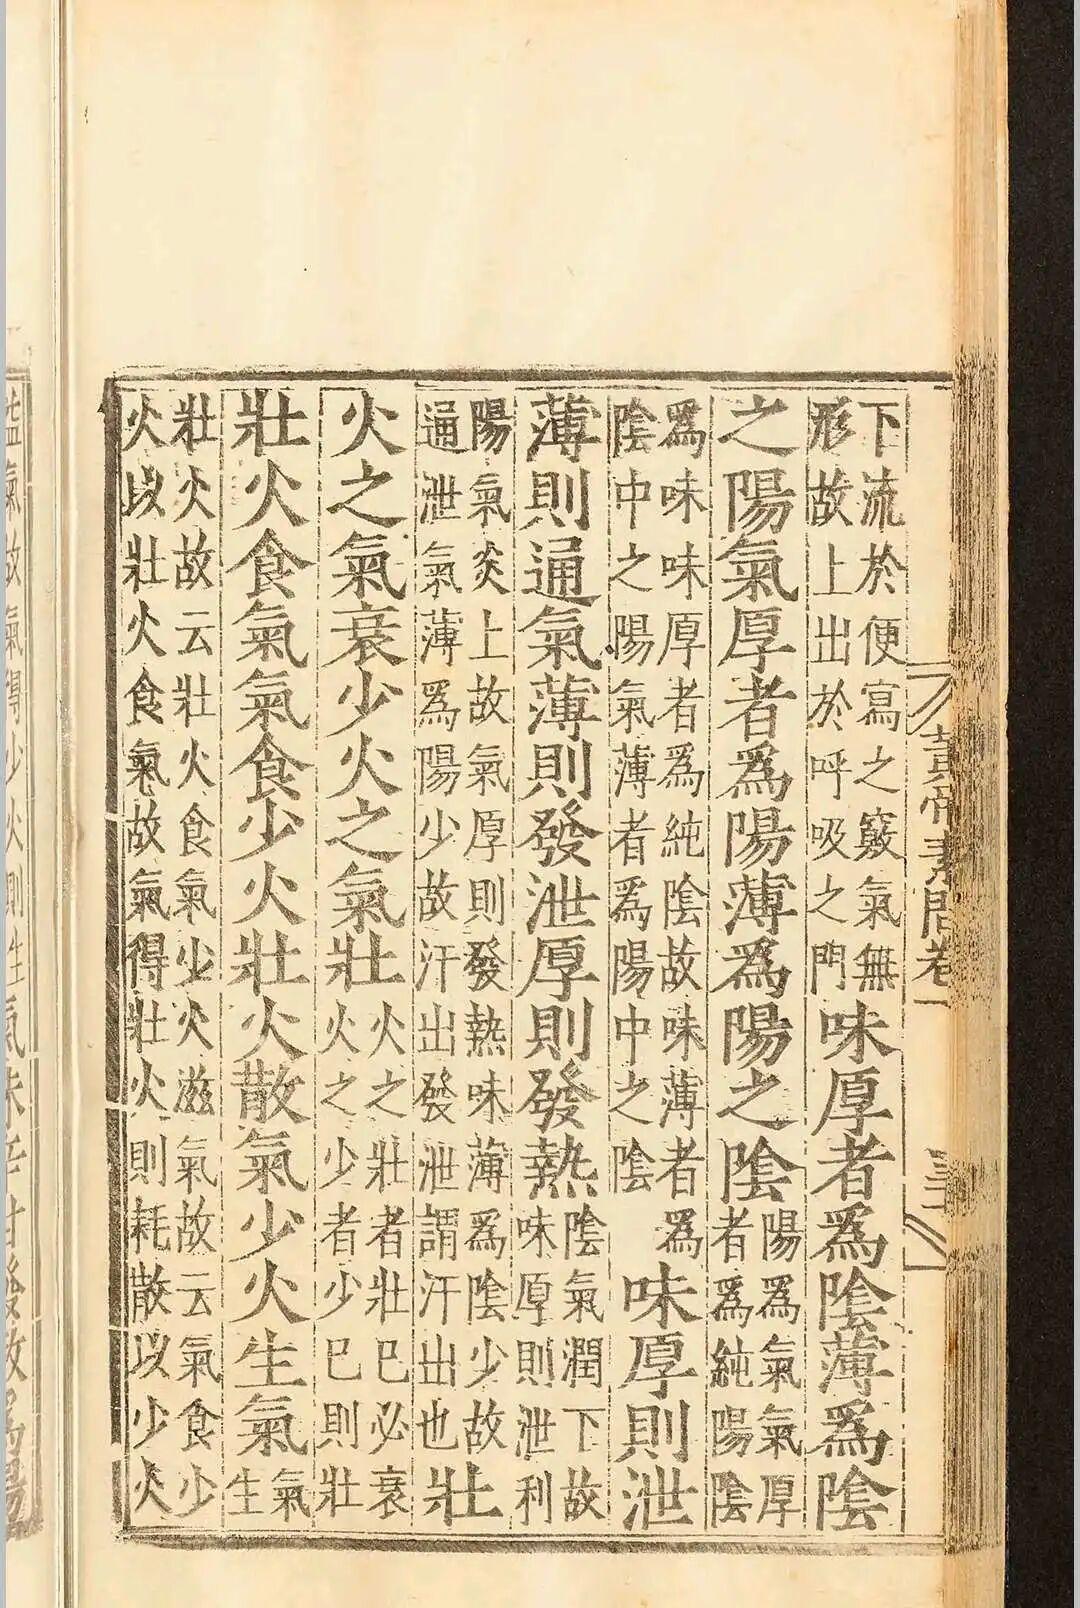 黃帝素問卷
下流於便寫之竅氣無
形故上出於呼吸之門
味厚者爲陰薄爲陰
之陽氣厚者爲陽薄爲陽之陰
陽爲氣氣厚
者爲純陽陰
爲味味厚者爲純陰故味薄者爲
陰中之陽氣薄者爲陽中之陰
味厚則泄
薄則通氣薄則發泄厚則發熱
陰氣潤下故
味厚則泄利
陽氣炎上故氣厚則發熱味薄爲陰少故
通泄氣薄爲陽少故汗出發泄謂汗出也
壯
火之氣衰少火之氣壯
火之壯者壯巳必衰
火之少者少巳則壯
壯火食氣氣食少火壯火散氣少火生氣
氣
生
壯火故云壯火食氣少火滋氣故云氣食少
火以壯火食氣故氣得壯火則耗散以少火